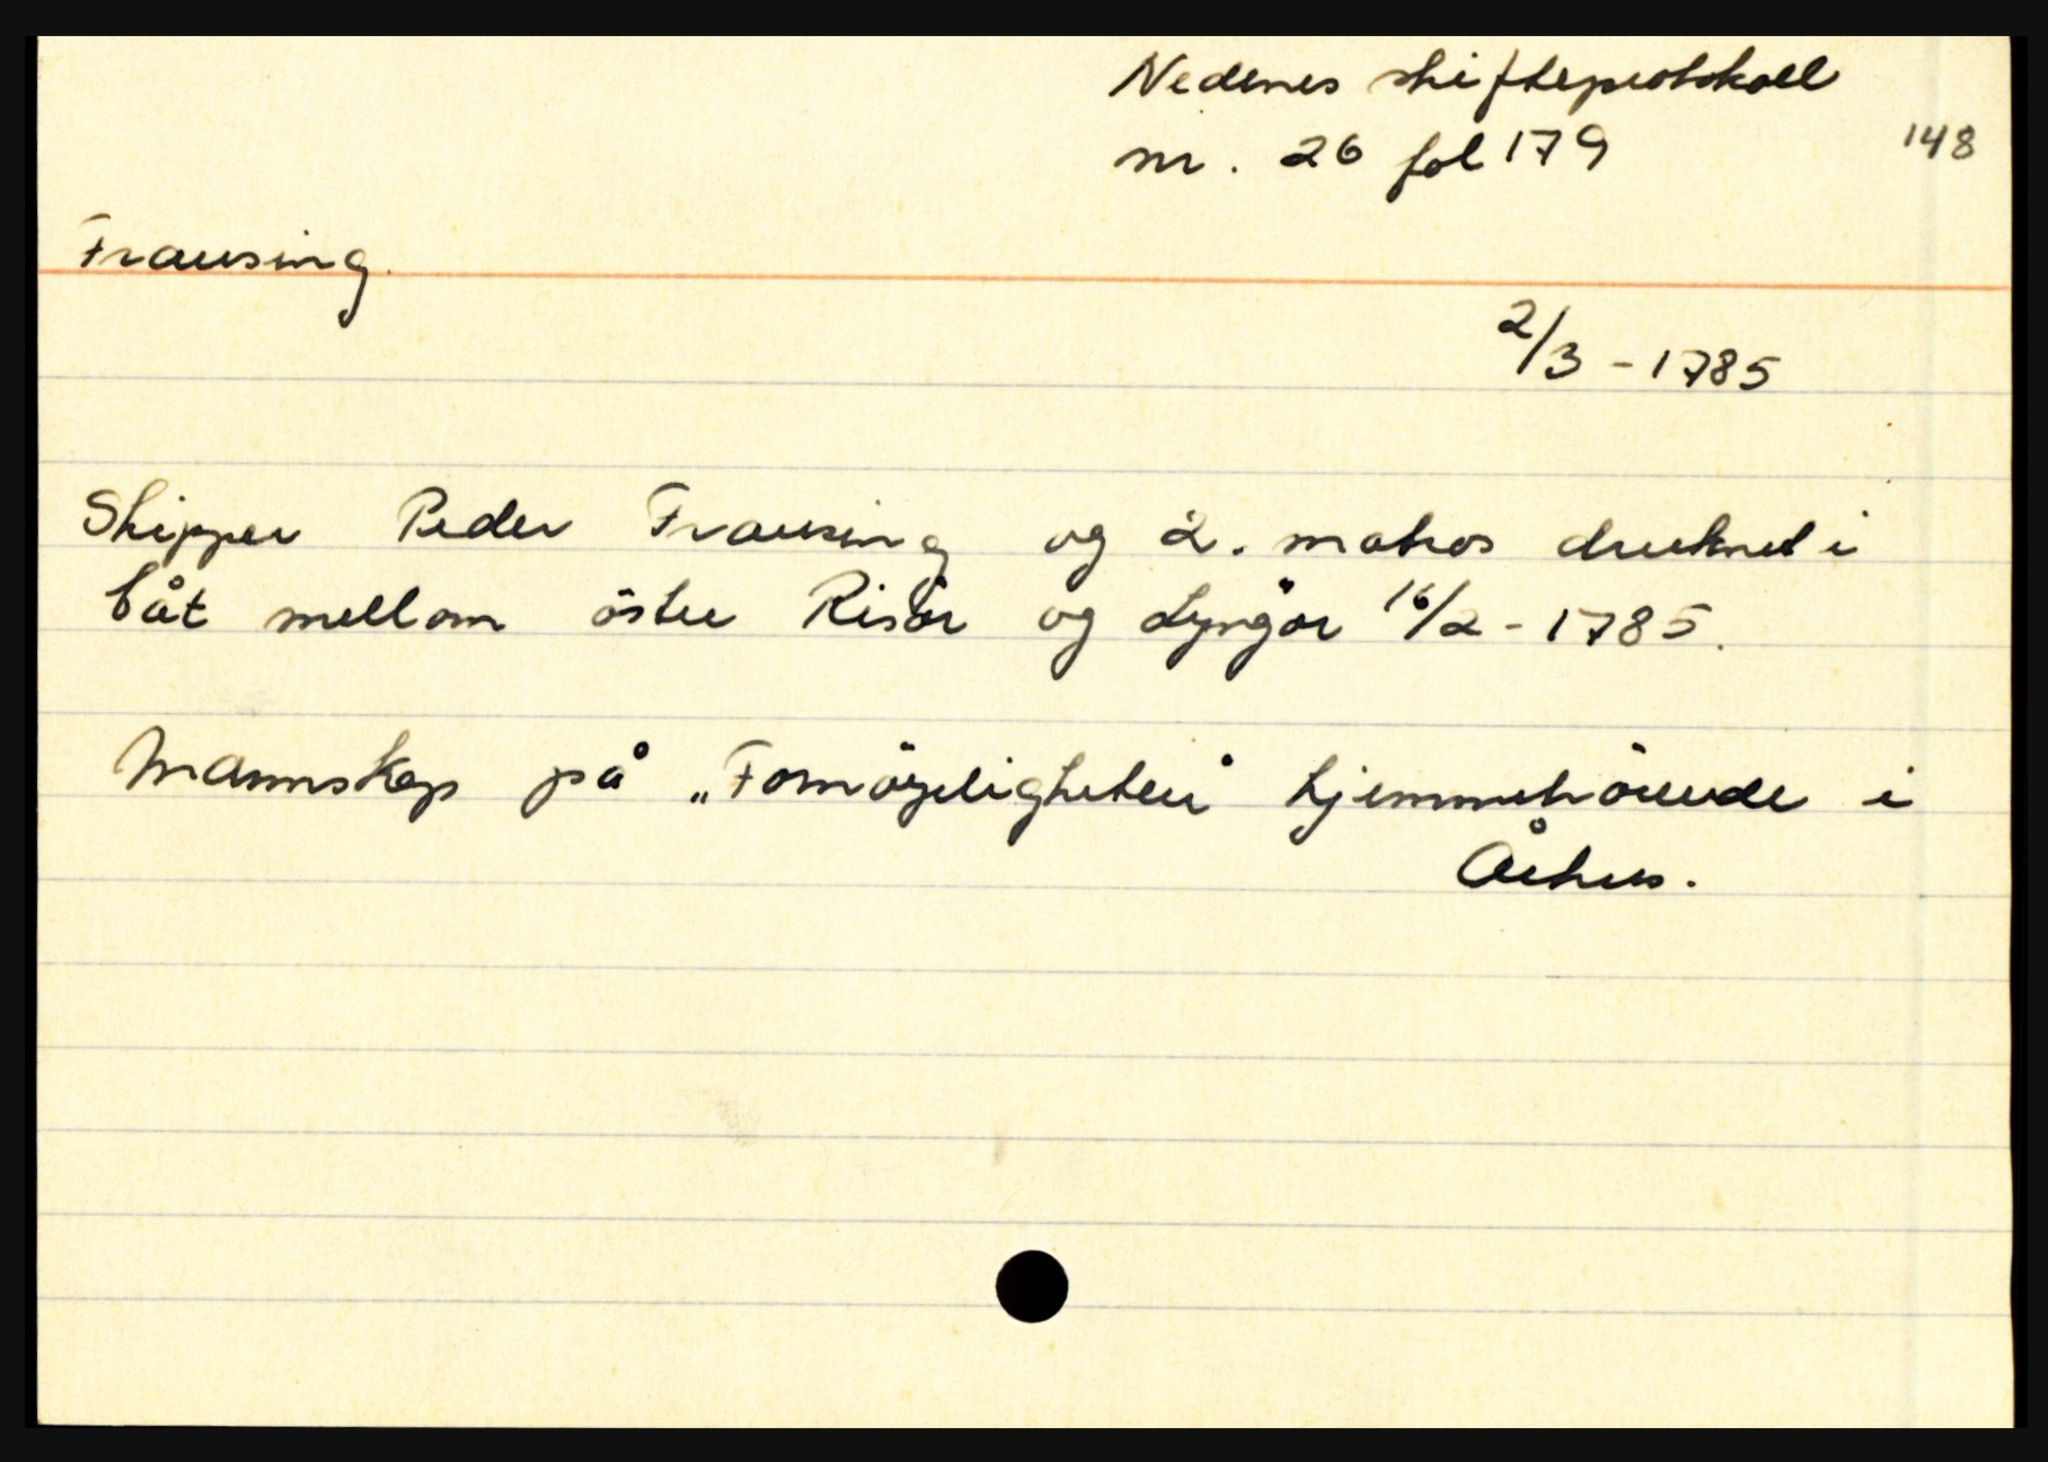 Nedenes skifteprotokoll
nr. 26 fol 179
148
Frausing.
2/3 - 1785
Skipper Peder Frausing og 2. matros druknet i
båt mellom östre Risör og Lyngör 16/2 - 1785.
Mannskap på „Fornöyeligheten" hjemmehörende i
Århus.